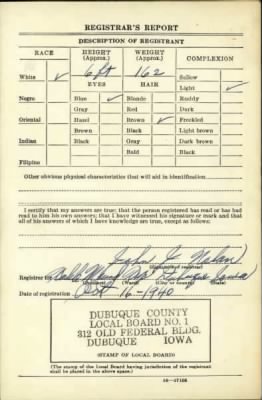 REGISTRAR'S REPORT
DESCRIPTION OF REGISTRANT
RACE HEIGHT (Approx.) WEIGHT (Approx.) COMPLEXION
White ✓ 6 ft 162 Sallow
EYES HAIR Light ✓
Negro Blue ✓ Blonde Ruddy
Gray Red Dark
Oriental Hazel Brown ✓ Freckled
Brown Black Light brown
Indian Black Gray Dark brown
Bald Black
Filipino
Other obvious physical characteristics that will aid in identification
I certify that my answers are true; that the person registered has read or has had
read to him his own answers; that I have witnessed his signature or mark and that
all of his answers of which I have knowledge are true, except as follows:
John J Nolan
(Signature of registrar)
Registrar for Dubuque Iowa
(City or county) (State)
Date of registration Oct 16-1940
DUBUQUE COUNTY
LOCAL BOARD NO. 1
312 OLD FEDERAL BLDG.
DUBUQUE IOWA
(STAMP OF LOCAL BOARD)
(The stamp of the Local Board having jurisdiction of the registrant
shall be placed in the above space.)
16—17105